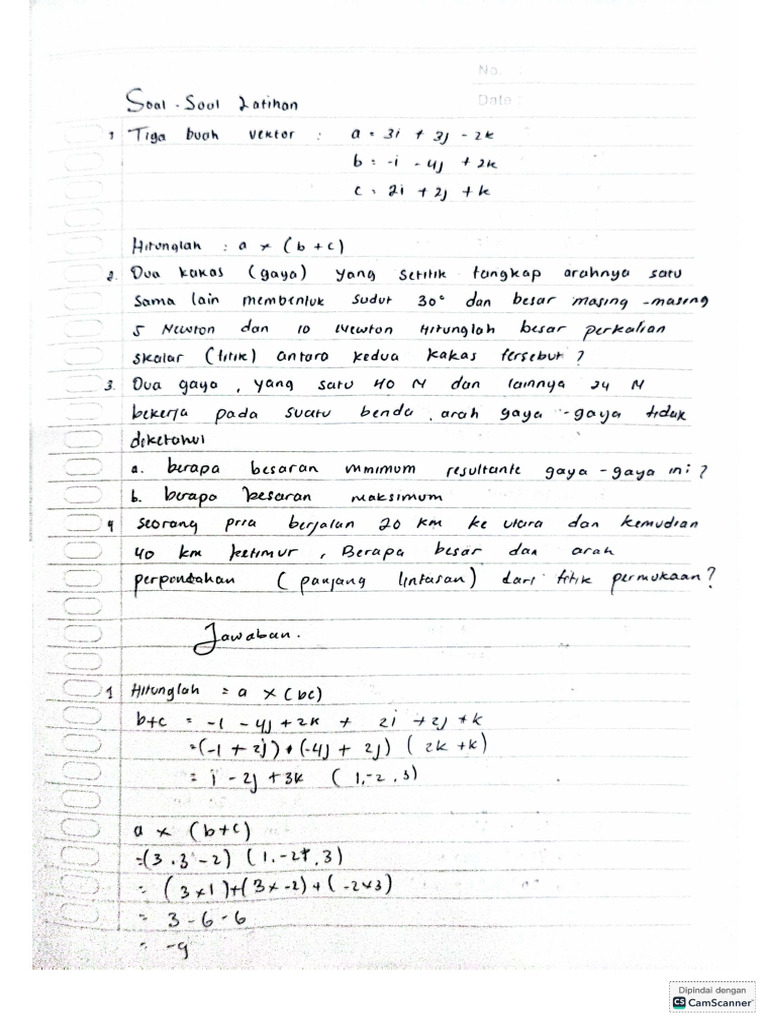 No.
Date:
Soal - Soal Latihan
1 Tiga buah vektor : a = 3i + 3j - 2k
b = -i - 4j + 2k
c = 2i + 2j + k
Hitunglah : a × (b + c)
2. Dua kakas (gaya) yang setitik tangkap arahnya satu
sama lain membentuk sudut 30° dan besar masing - masing
5 Newton dan 10 Newton Hitunglah besar perkalian
skalar (titik) antara kedua kakas tersebut ?
3. Dua gaya , yang satu 40 N dan lainnya 24 N
bekerja pada suatu benda , arah gaya - gaya tidak
diketahui
a. berapa besaran minimum resultante gaya - gaya ini ?
b. berapa besaran maksimum
4 seorang pria berjalan 20 km ke utara dan kemudian
40 km ketimur , Berapa besar dan arah
perpondahan ( panjang lintasan ) dari titik permukaan ?
Jawaban.
1 Hitunglah = a × (bc)
b+c = -i - 4j + 2k + 2i + 2j + k
=(-i + 2j) + (-4j + 2j) ( 2k + k)
= i - 2j + 3k ( 1, -2 , 3)
a × (b+c)
=(3 . 3 - 2) (1. -2 , 3)
= (3×1)+(3× -2)+(-2×3)
= 3 - 6 - 6
= -9
Dipindai dengan
CS CamScanner